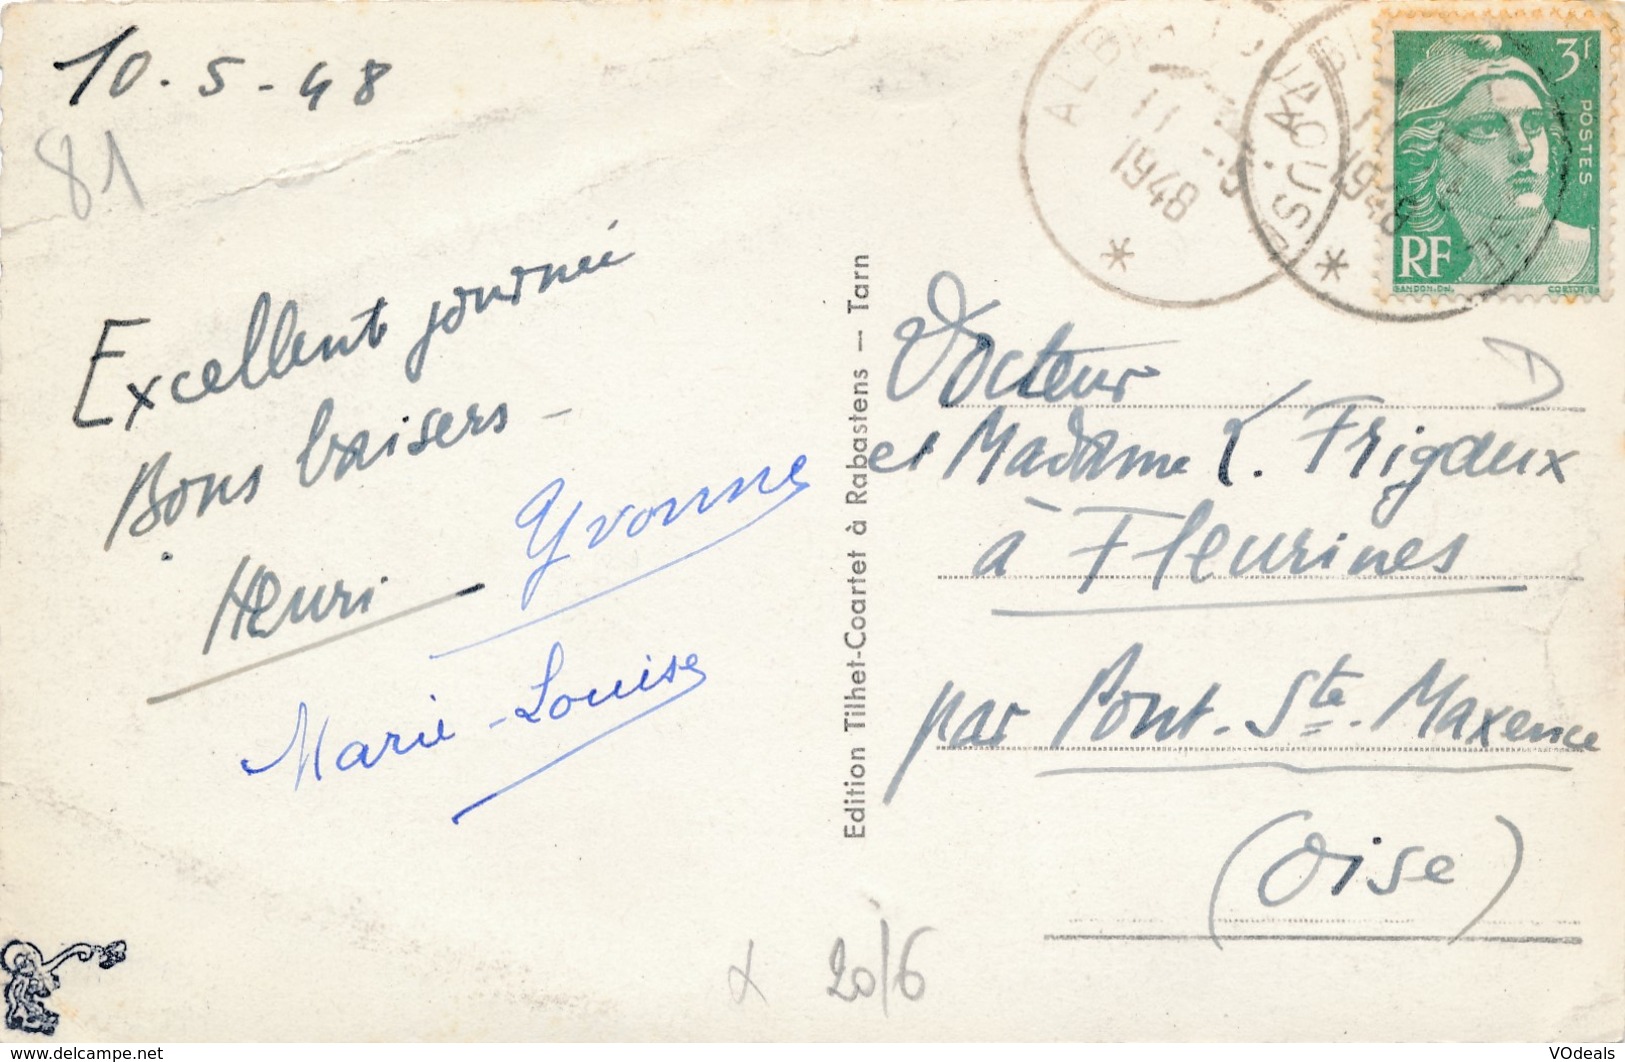 10-5-48
81
Excellent journée
Bons baisers -
Henri
Yvonne
Marie-Louise
Edition Tilhet-Coartet à Rabastens — Tarn
1948
1948
3f
POSTES
RF
Docteur
et Madame L. Frigaux
à Fleurines
par Pont-Ste-Maxence
(Oise)
D
20/6
www.delcampe.net
VOdeals